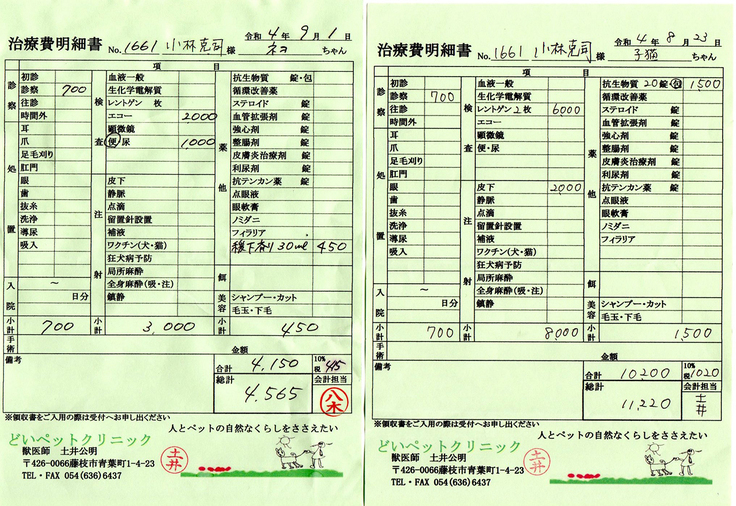 令和 4 年 9 月 1 日
治療費明細書 No. 1661 小林克司 様 ネコ ちゃん
項 目
診察
初診
診察 700
往診
時間外
処置
耳
爪
足毛刈り
肛門
眼
歯
抜糸
洗浄
導尿
吸入
入院
~
日分
検査
血液一般
生化学電解質
レントゲン 枚
エコー 2000
顕微鏡
便・尿 1,000
注射
皮下
静脈
点滴
留置針設置
補液
ワクチン(犬・猫)
狂犬病予防
局所麻酔
全身麻酔(吸・注)
鎮静
薬他
抗生物質 錠・包
循環改善薬
ステロイド 錠
血管拡張剤 錠
強心剤 錠
整腸剤 錠
皮膚炎治療剤 錠
利尿剤 錠
抗テンカン薬 錠
点眼液
眼軟膏
ノミダニ
フィラリア
30ml 450
餌
美容
シャンプー・カット
毛玉・下毛
小計 700
小計 3,000
小計 450
手術
金額
備考
合計 4,150
10%税 415
総計 4,565
会計担当 八木
※領収書をご入用の際は受付へお申し出ください
人とペットの自然なくらしをささえたい
どいペットクリニック
獣医師 土井公明
〒426-0066藤枝市青葉町1-4-23
TEL・FAX 054(636)6437
土井
令和 4 年 8 月 23 日
治療費明細書 No. 1661 小林克司 様 子猫 ちゃん
項 目
診察
初診
診察 700
往診
時間外
処置
耳
爪
足毛刈り
肛門
眼
歯
抜糸
洗浄
導尿
吸入
入院
~
日分
検査
血液一般
生化学電解質
レントゲン 2 枚 6000
エコー
顕微鏡
便・尿
注射
皮下 2000
静脈
点滴
留置針設置
補液
ワクチン(犬・猫)
狂犬病予防
局所麻酔
全身麻酔(吸・注)
鎮静
薬他
抗生物質 20 錠・包 1500
循環改善薬
ステロイド 錠
血管拡張剤 錠
強心剤 錠
整腸剤 錠
皮膚炎治療剤 錠
利尿剤 錠
抗テンカン薬 錠
点眼液
眼軟膏
ノミダニ
フィラリア
餌
美容
シャンプー・カット
毛玉・下毛
小計 700
小計 8000
小計 1,500
手術
金額
備考
合計 10,200
10%税 1020
総計 11,220
会計担当 土井
※領収書をご入用の際は受付へお申し出ください
人とペットの自然なくらしをささえたい
どいペットクリニック
獣医師 土井公明
〒426-0066藤枝市青葉町1-4-23
TEL・FAX 054(636)6437
土井